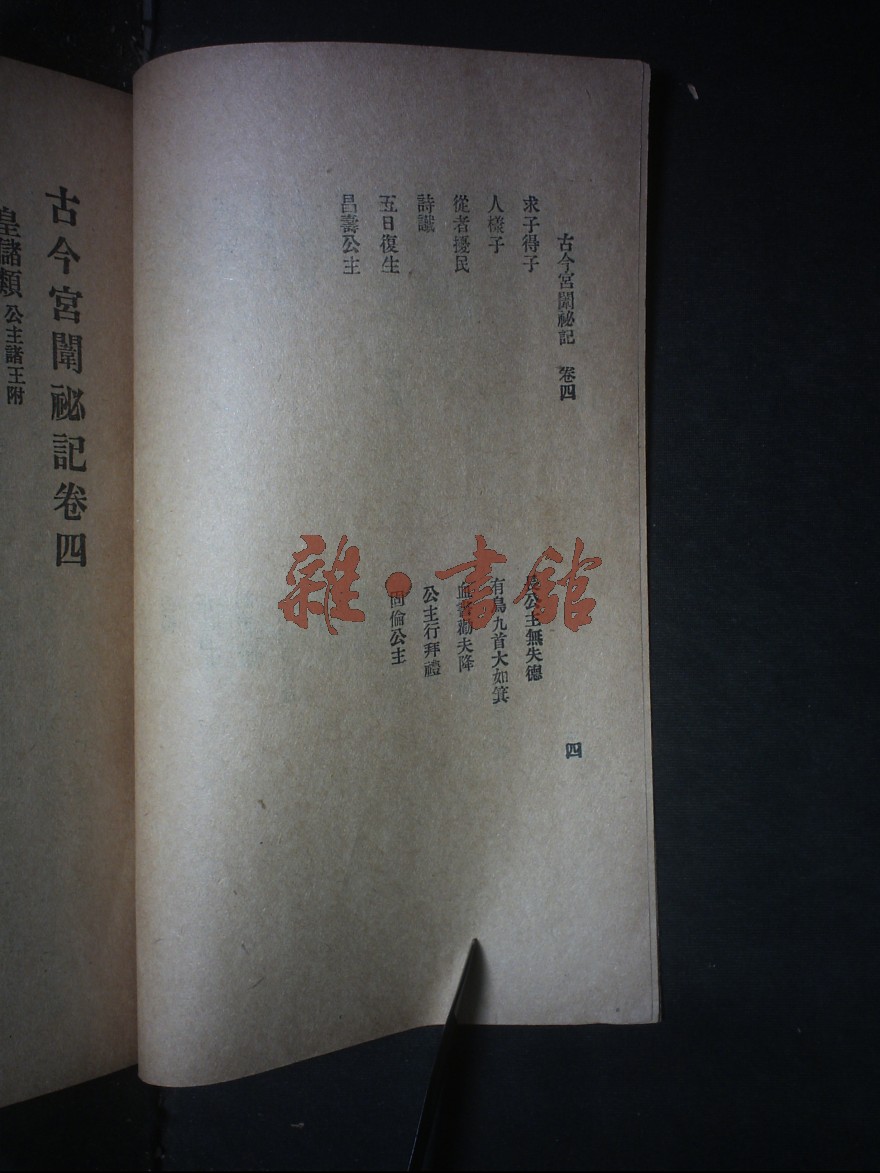 古今宮闈祕記 卷四
四
求子得子
公主無失德
人樣子
有鳥九首大如箕
從者擾民
血書勸夫降
詩讖
公主行拜禮
五日復生
固倫公主
昌壽公主
古今宮闈祕記卷四
皇儲類 公主諸王附
雜·書館